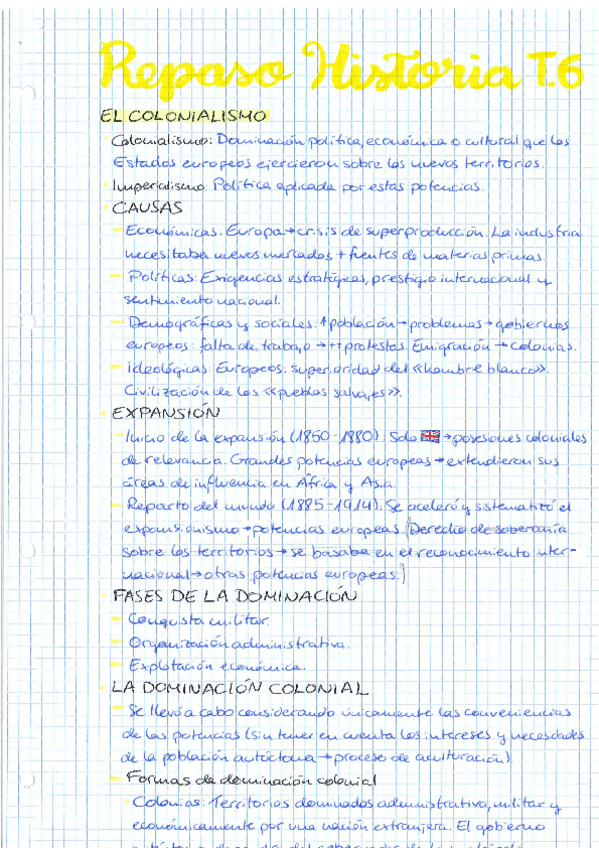 Repaso Historia T.6
EL COLONIALISMO
Colonialismo: Dominación política, económica o cultural que los
Estados europeos ejercieron sobre los nuevos territorios.
Imperialismo: Política aplicada por estas potencias.
CAUSAS
- Económicas. Europa→crisis de superproducción. La industria
necesitaba nuevos mercados + fuentes de materias primas.
- Políticas: Exigencias estratégicas, prestigio internacional y
sentimiento nacional.
- Demográficas y sociales: ↑población→problemas→gobiernos
europeos: falta de trabajo →↑↑protestas. Emigración→colonias.
- Ideológicas. Europeos: superioridad del «hombre blanco».
Civilización de los «pueblos salvajes».
EXPANSIÓN
- Inicio de la expansión (1850-1880): Solo 🇬🇧→posesiones coloniales
de relevancia. Grandes potencias europeas→extendieron sus
áreas de influencia en África y Asia.
- Reparto del mundo (1885-1914): Se aceleró y sistematizó el
expansionismo→potencias europeas. (Derecho de soberanía
sobre los territorios→se basaba en el reconocimiento inter-
nacional→otras potencias europeas.)
FASES DE LA DOMINACIÓN
- Conquista militar.
- Organización administrativa.
- Explotación económica.
LA DOMINACIÓN COLONIAL
- Se llevó a cabo considerando únicamente las conveniencias
de las potencias (sin tener en cuenta los intereses y necesidades
de la población autóctona→proceso de aculturación).
- Formas de dominación colonial
· Colonias: Territorios dominados administrativa, militar y
económicamente por una nación extranjera. El gobierno